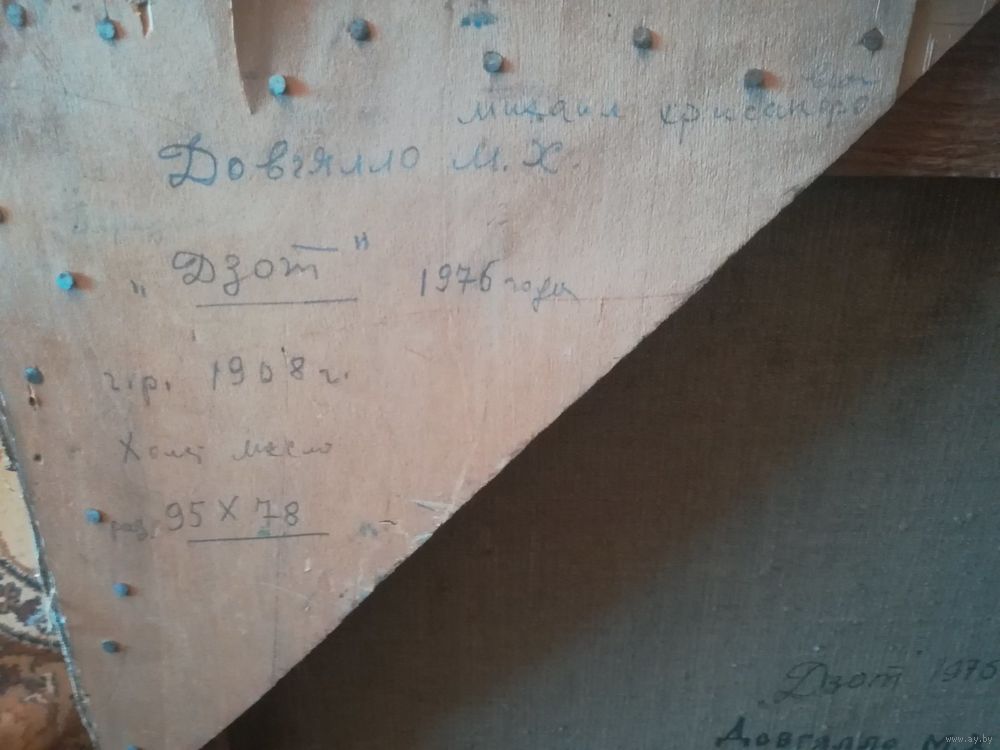 михаил хрисанфо
Довгялло М.Х.
„Дзот" 1976 года
г.р. 1908 г.
Холст масло
раз. 95 X 78
„Дзот" 1976
Довгялло М
www.ay.by